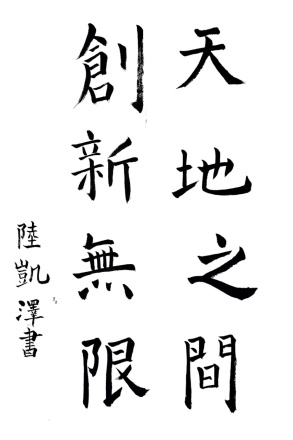 天地之間
創新無限
陸凱澤書